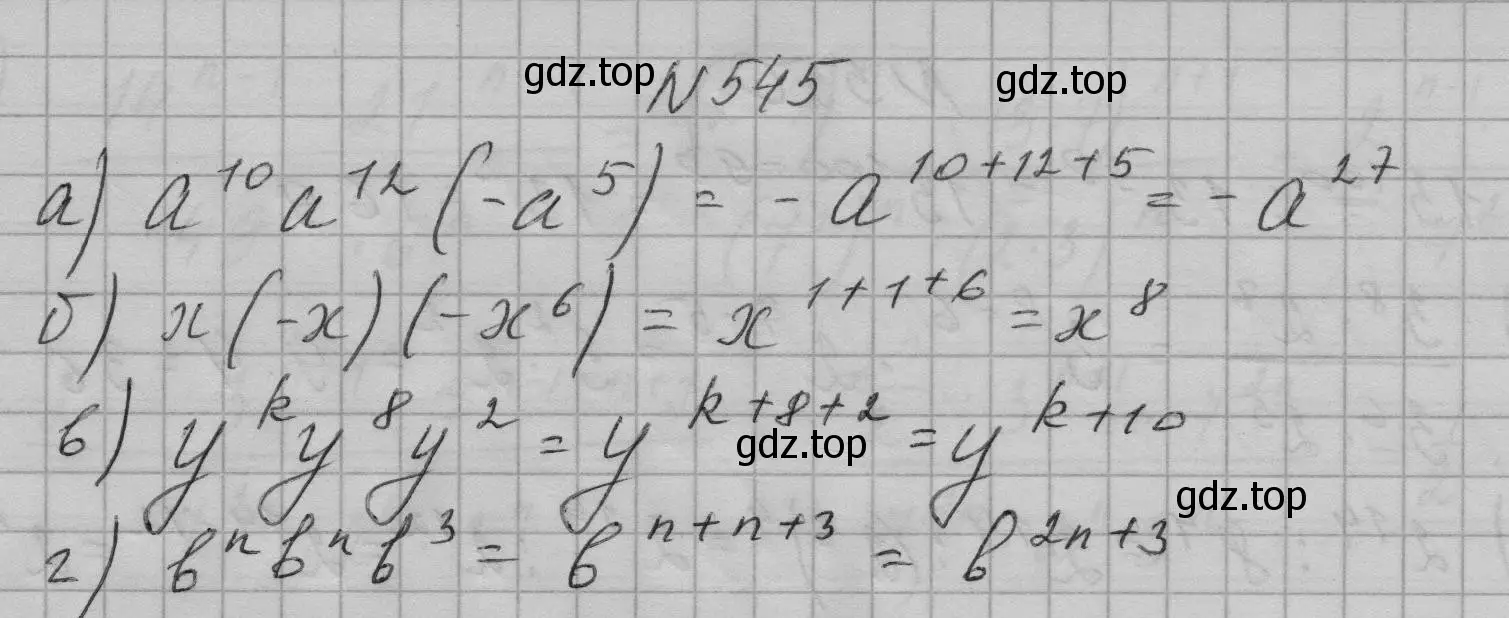 gdz.top N 545 gdz.top
а) a¹⁰ a¹² (-a⁵) = - a¹⁰⁺¹²⁺⁵ = - a²⁷
б) x (-x) (-x⁶) = x¹⁺¹⁺⁶ = x⁸
в) yᵏ y⁸ y² = yᵏ⁺⁸⁺² = yᵏ⁺¹⁰
gdz.top gdz.top
г) bⁿ bⁿ b³ = bⁿ⁺ⁿ⁺³ = b²ⁿ⁺³